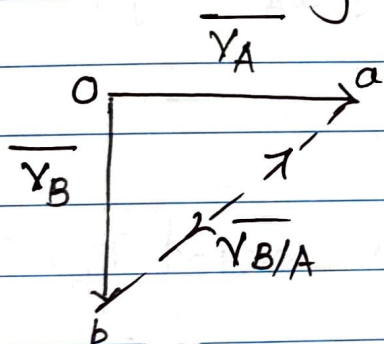 V_A
O a
V_B
V_B/A
b